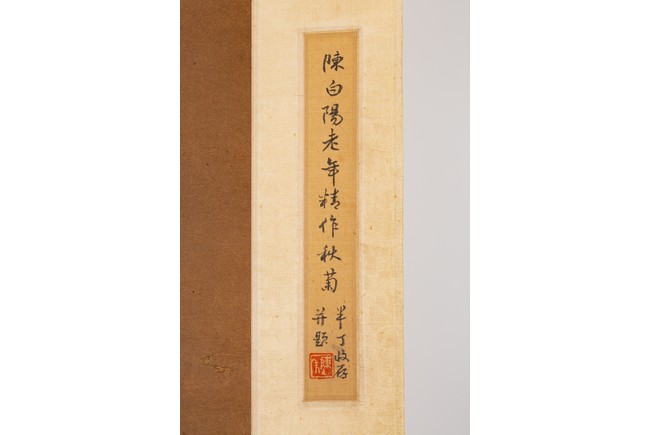 陳白陽老年精作秋菊
半丁收存
并題